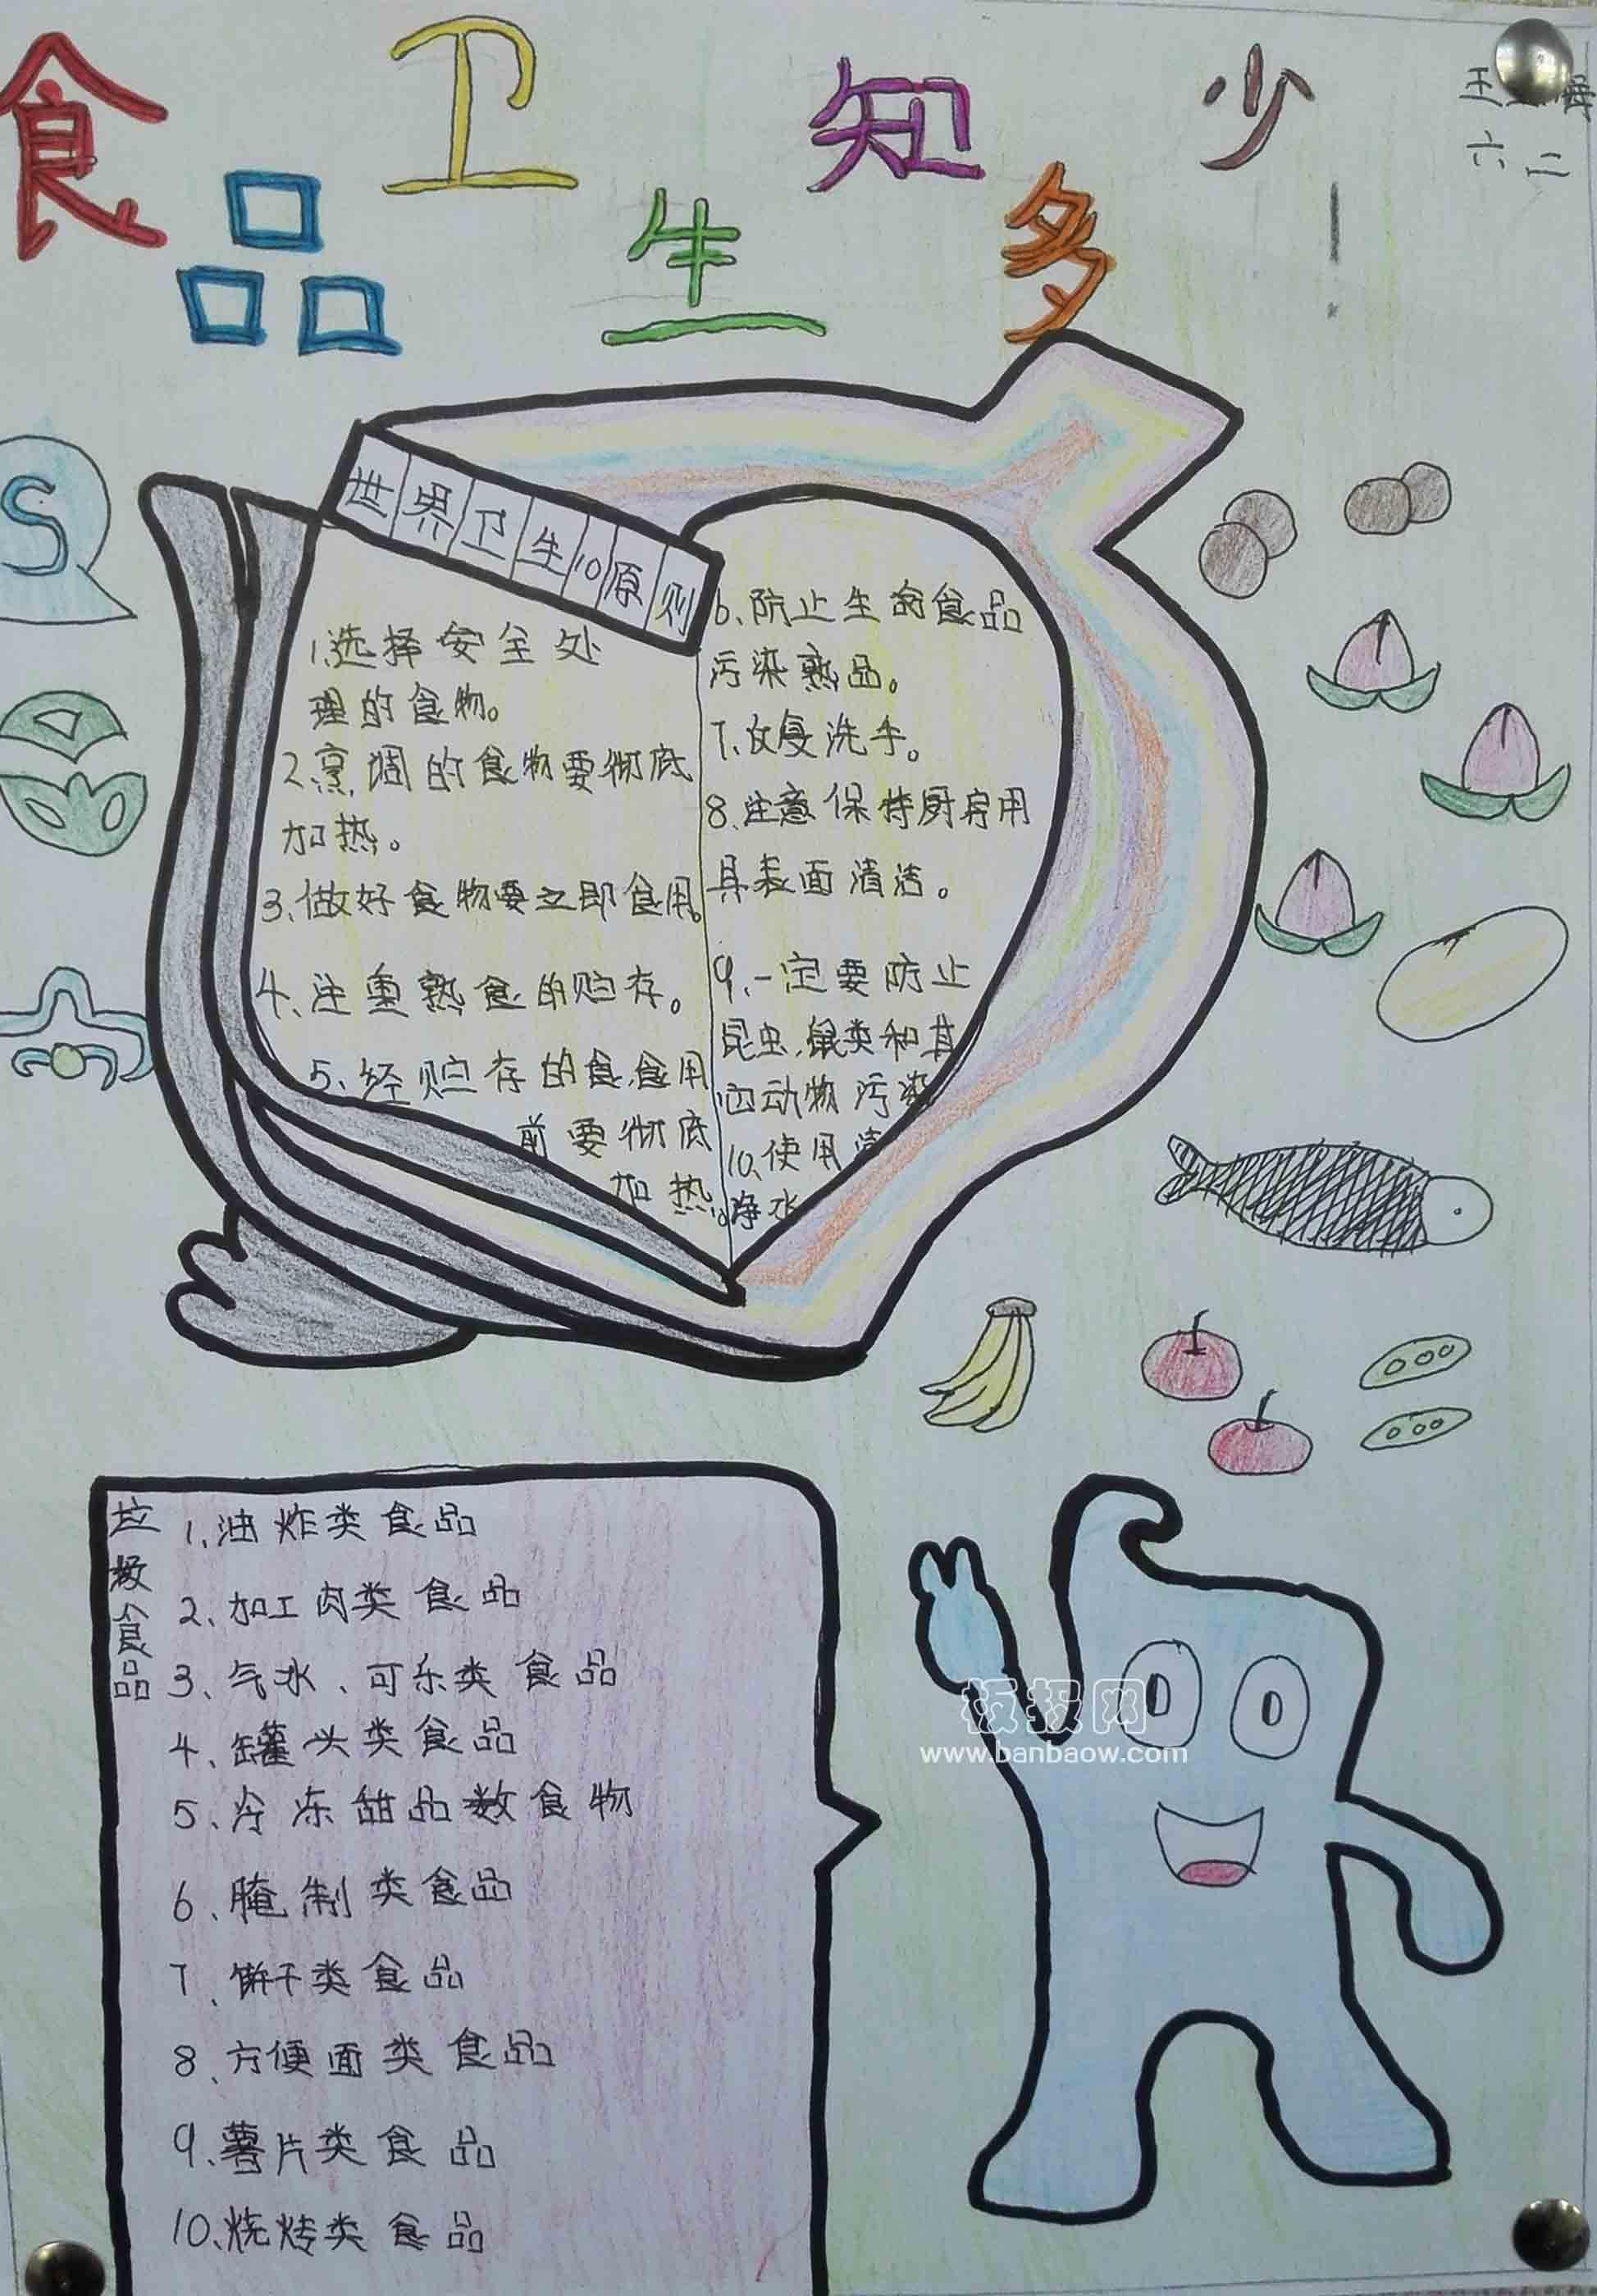 食品卫生知多少!
王
六二
世界卫生10原则
1.选择安全处
理的食物。
2.烹调的食物要彻底
加热。
3、做好食物要立即食用。
4、注重熟食的贮存。
5、经贮存的食,食用
前要彻底
加热。
6、防止生的食品
污染熟品。
7、反复洗手。
8、注意保持厨房用
具表面清洁。
9、一定要防止
昆虫、鼠类和其
四动物污染
10、使用清
净水
垃圾食品
1、油炸类食品
2、加工肉类食品
3、气水、可乐类食品
4、罐头类食品
5、冷冻甜品数食物
6、腌制类食品
7、饼干类食品
8、方便面类食品
9、薯片类食品
10、烧烤类食品
板报网
www.banbaow.com